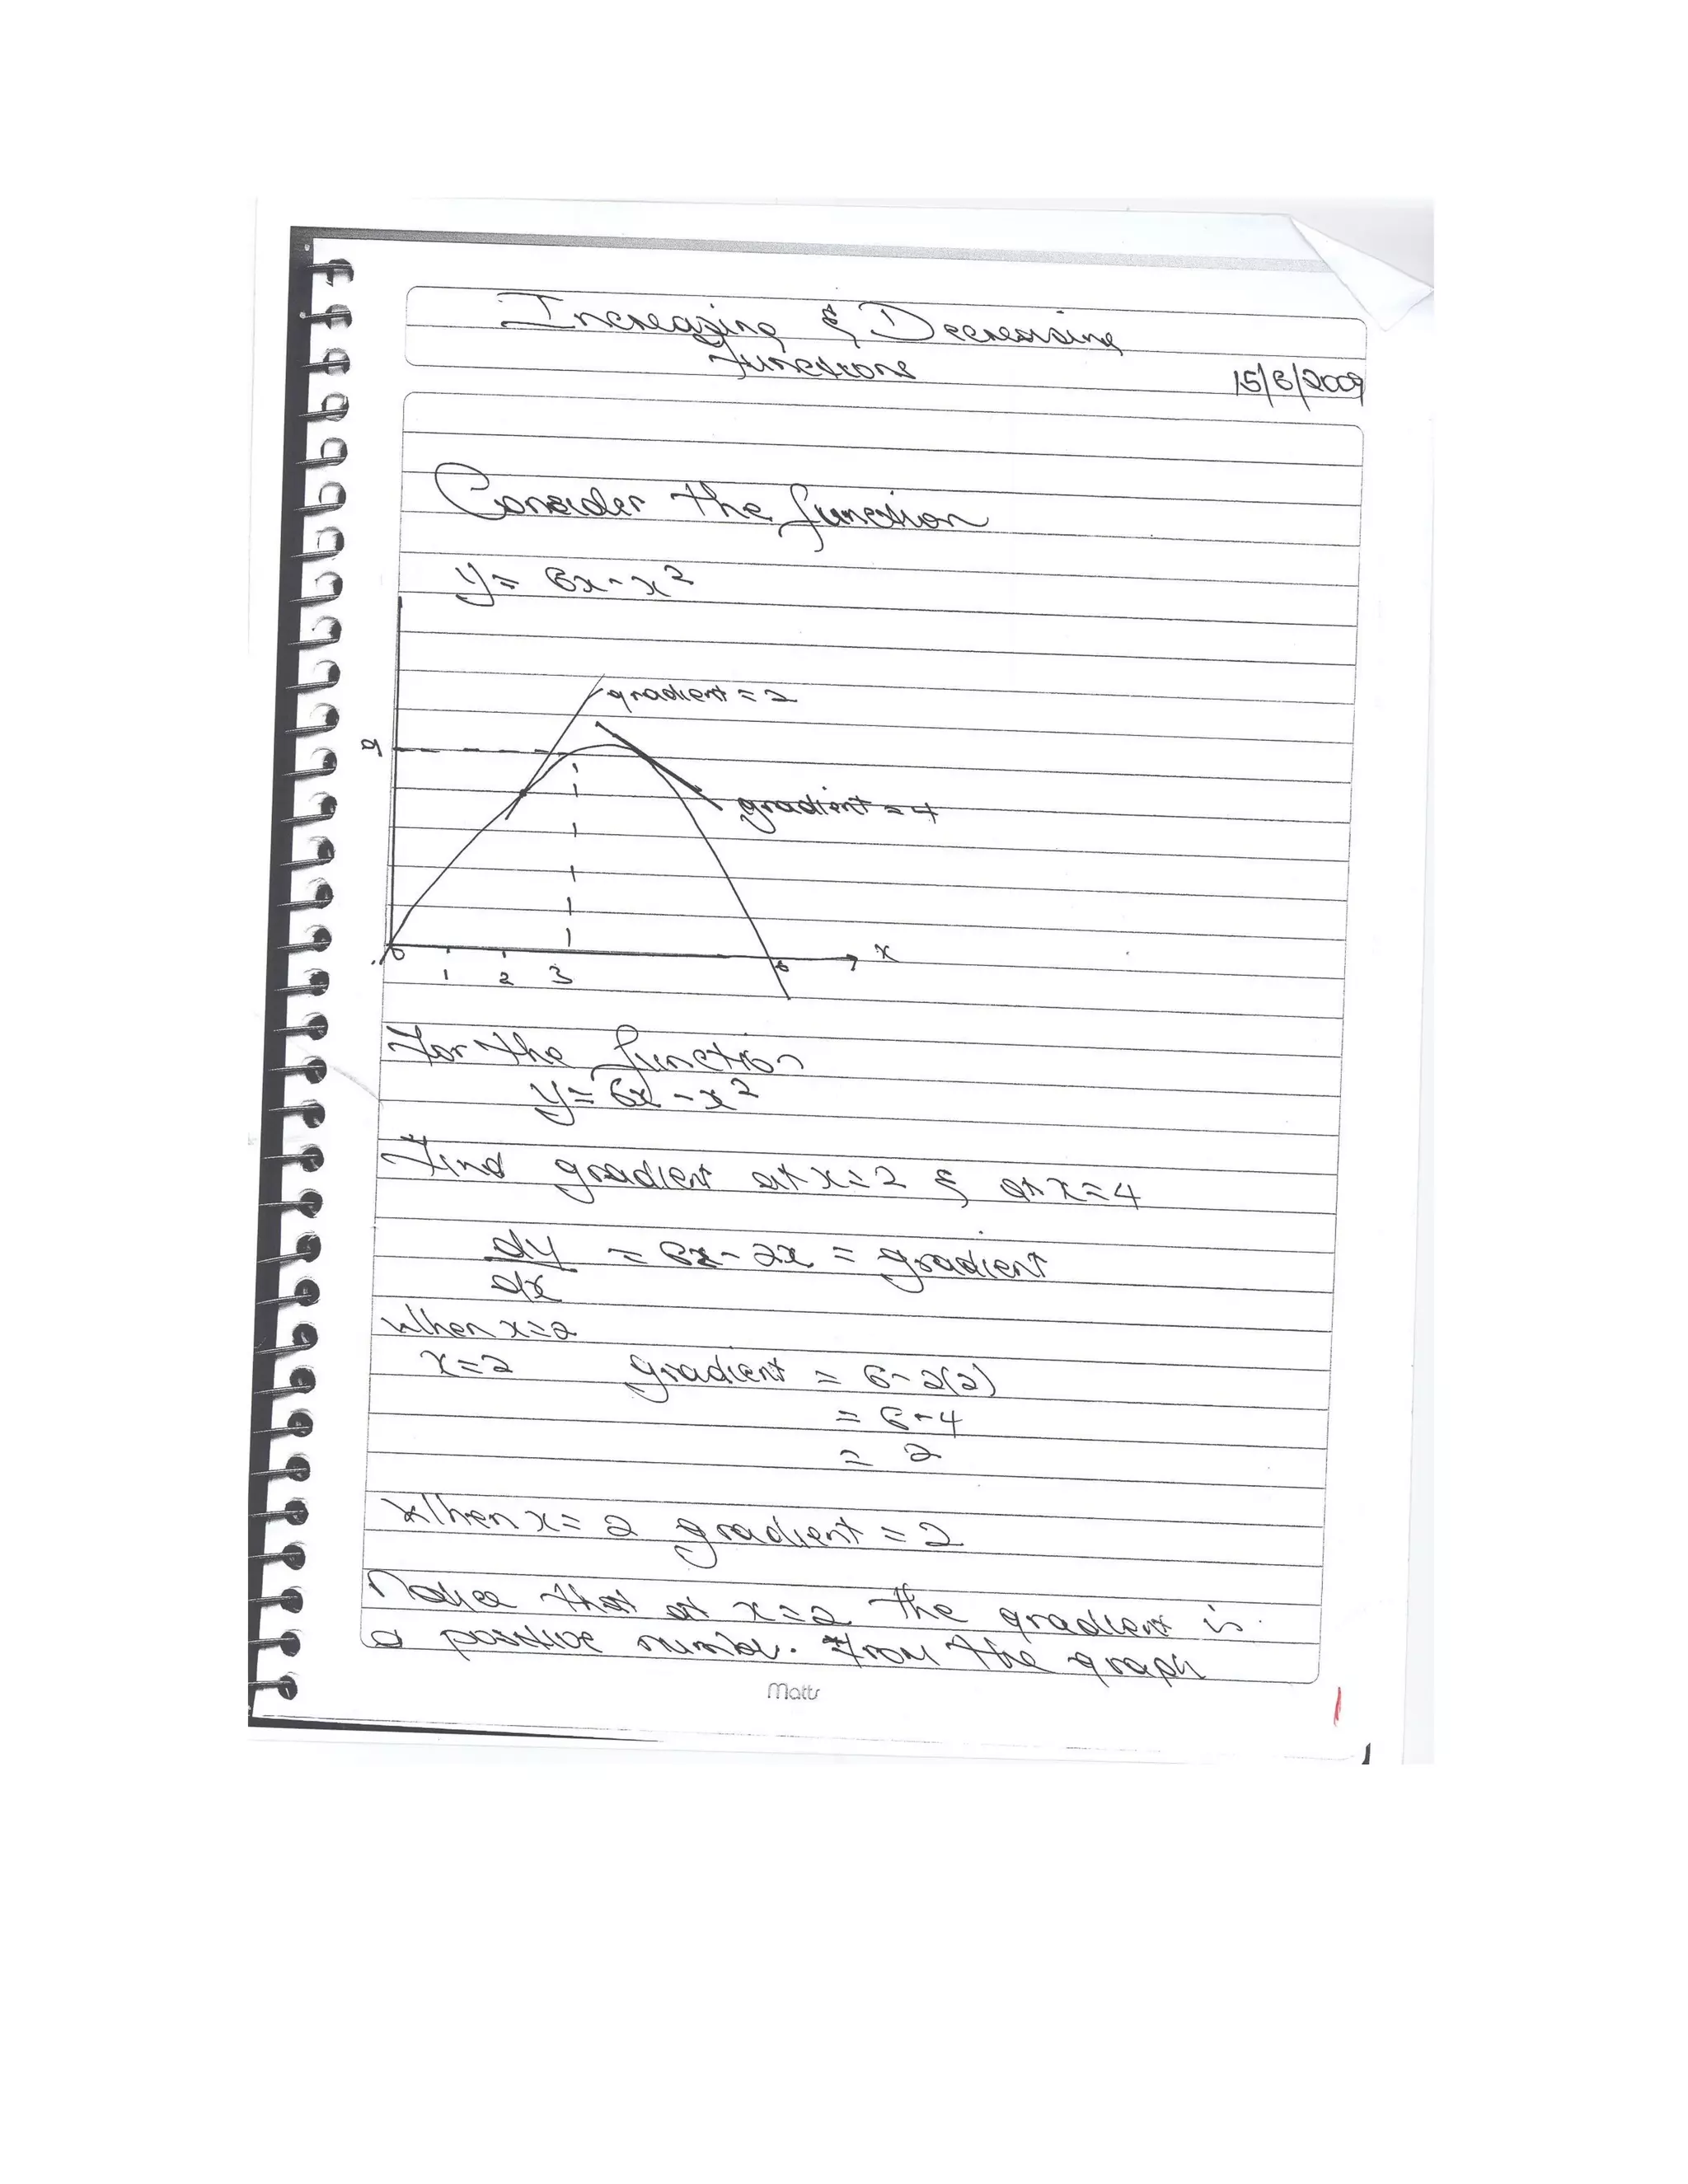 Increasing & Decreasing
Functions
15/6/2009
Consider the function
y = 6x - x²
gradient = 2
9
gradient = 4
x
0
1 2 3 6
For the function
y = 6x - x²
Find gradient at x = 2 & at x = 4
dy
dx = 6x - 2x = gradient
When x = 2
x = 2 gradient = 6 - 2(2)
= 6 - 4
= 2
When x = 2 gradient = 2
Notice that at x = 2 the gradient is
a positive number. From the graph
Matts
1